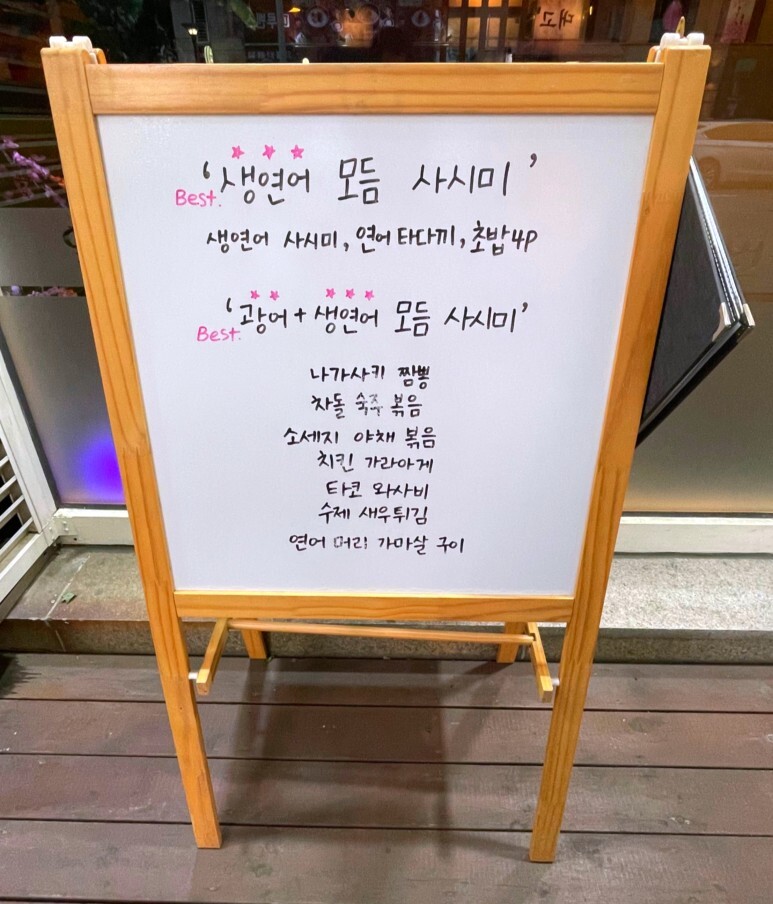 '생연어 모듬 사시미'
Best.
생연어 사시미, 연어 타다끼, 초밥 4p
'광어 + 생연어 모듬 사시미'
Best.
나가사키 짬뽕
차돌 숙주 볶음
소세지 야채 볶음
치킨 가라아게
타코 와사비
수제 새우튀김
연어 머리 가마살 구이